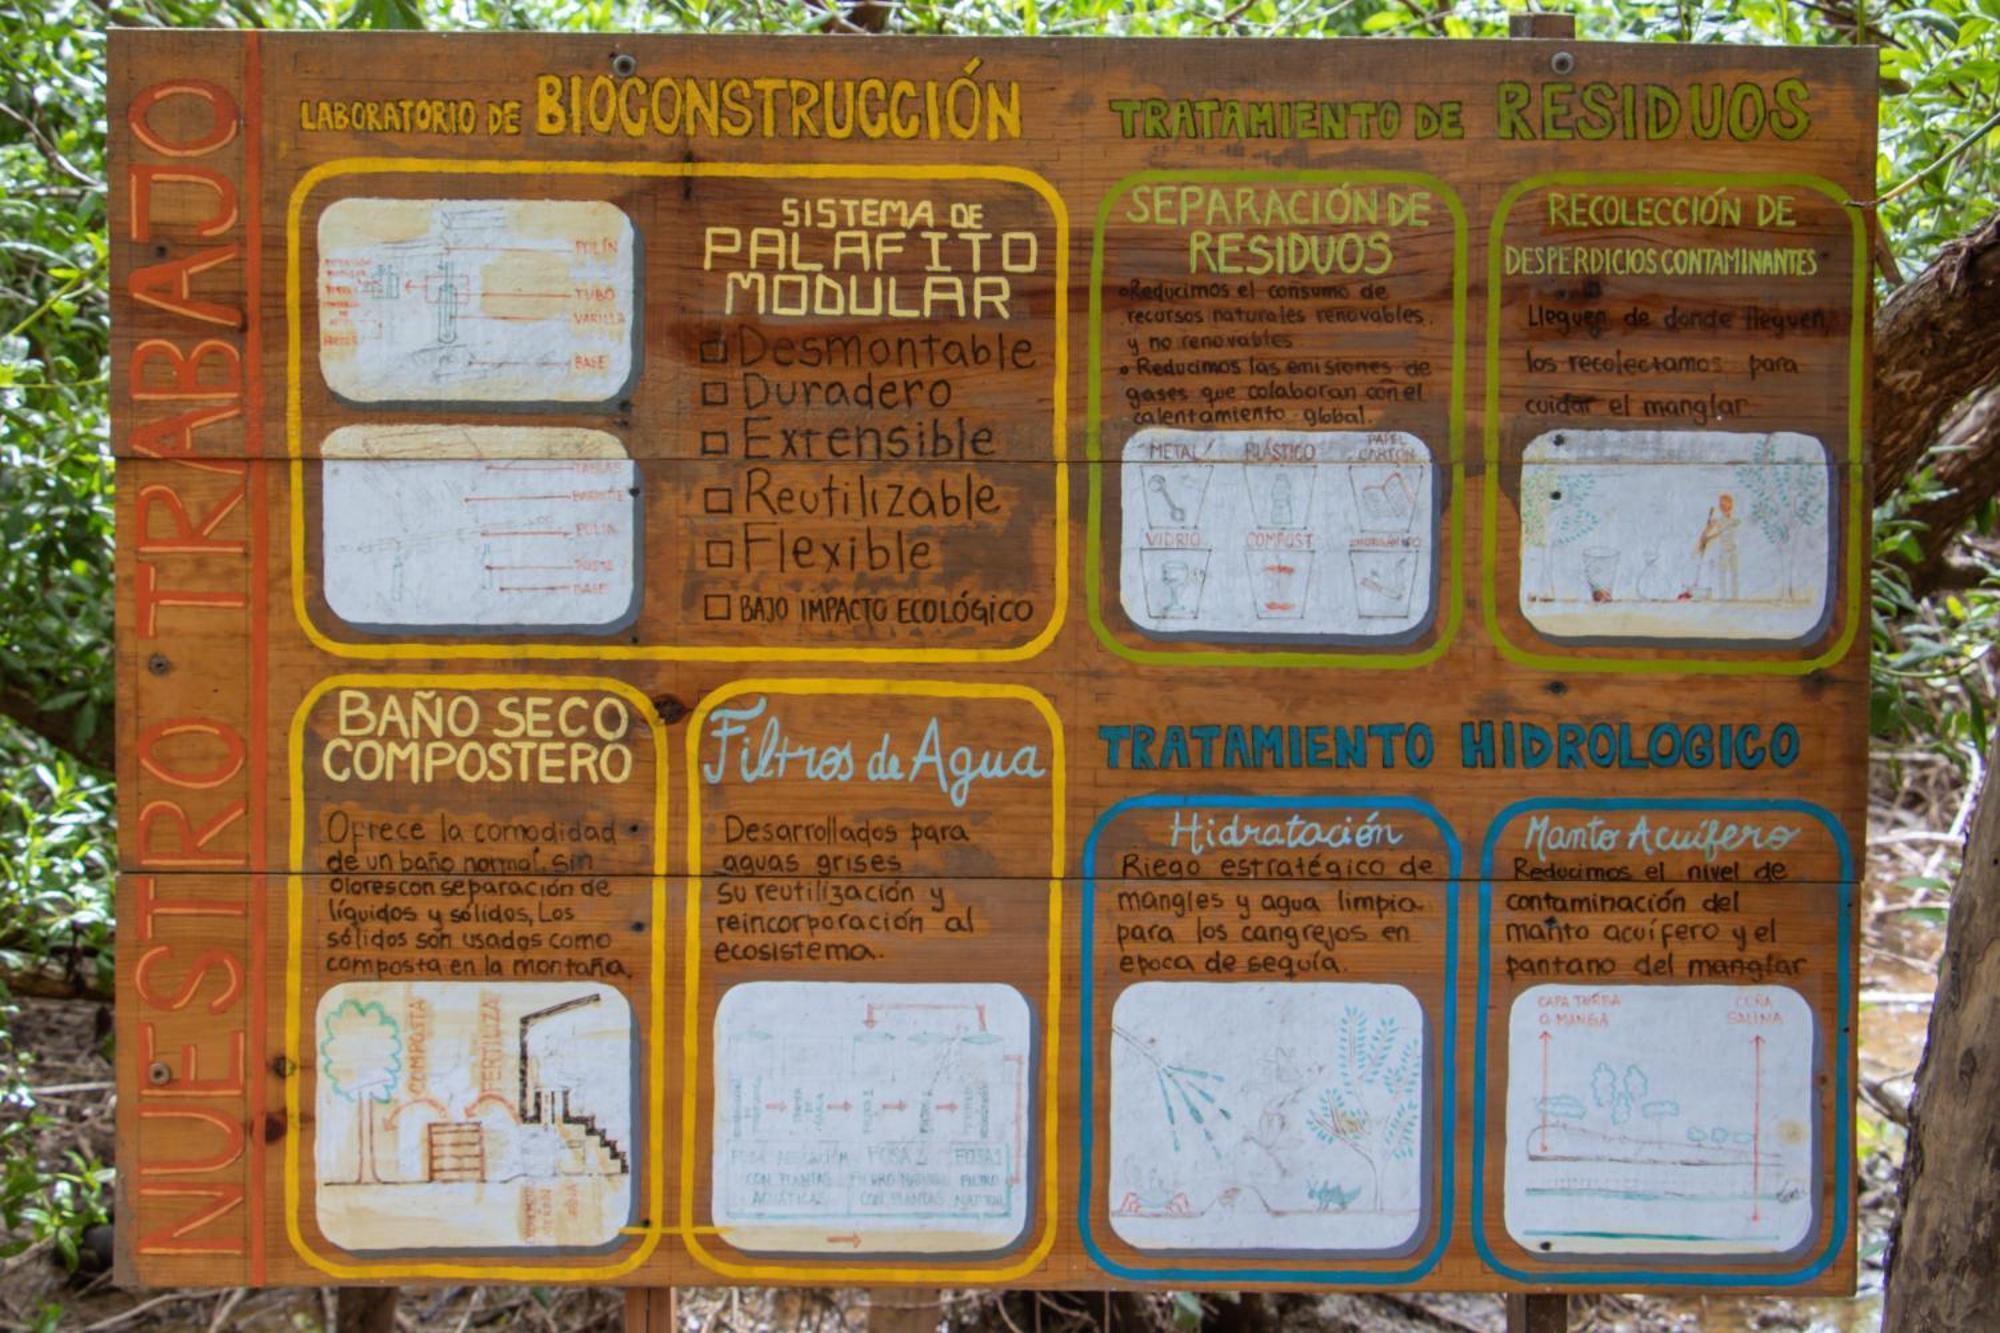 NUESTRO TRABAJO
LABORATORIO DE BIOCONSTRUCCIÓN
SISTEMA DE
PALAFITO
MODULAR
Desmontable
Duradero
Extensible
Reutilizable
Flexible
BAJO IMPACTO ECOLÓGICO
POLÍN
TUBO
VARILLA
BASE
TABLAS
POLIN
POSTE
BASE
BAÑO SECO
COMPOSTERO
Ofrece la comodidad
de un baño normal, sin
olores con separación de
líquidos y sólidos, Los
sólidos son usados como
composta en la montaña.
COMPOSTA
FERTILIZA
Filtros de Agua
Desarrollados para
aguas grises
su reutilización y
reincorporación al
ecosistema.
CON PLANTAS
ACUÁTICAS
FOSA 2
CON PLANTAS
FOSA 1
FILTRO
TRATAMIENTO DE RESIDUOS
SEPARACIÓN DE
RESIDUOS
•Reducimos el consumo de
recursos naturales renovables.
y no renovables
•Reducimos las emisiones de
gases que colaboran con el
calentamiento global.
METAL PLÁSTICO PAPEL
CARTÓN
VIDRIO COMPOST
RECOLECCIÓN DE
DESPERDICIOS CONTAMINANTES
Lleguen de donde lleguen,
los recolectamos para
cuidar el manglar
TRATAMIENTO HIDROLOGICO
Hidratación
Riego estratégico de
mangles y agua limpia
para los cangrejos en
epoca de sequía.
Manto Acuífero
Reducimos el nivel de
contaminación del
manto acuífero y el
pantano del manglar
CAPA TURBA
O MANGA
CUÑA
SALINA